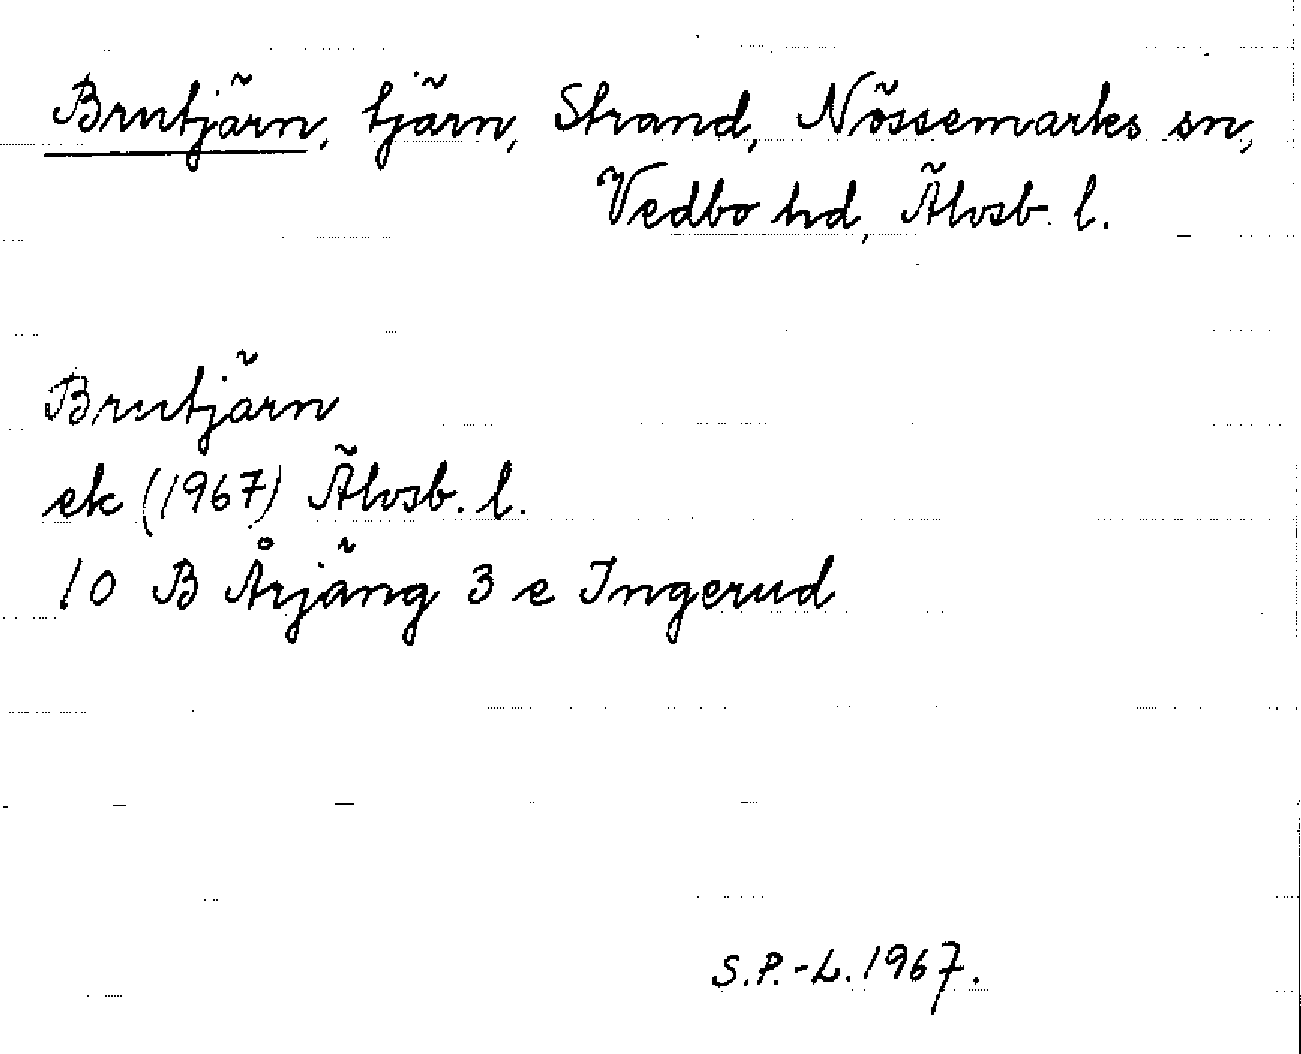 Brutjärn, tjärn, Strand, Nössemarks sn,
Vedbo hd, Älvsb. l.
Brutjärn
ek (1967) Älvsb. l.
10 B Årjäng 3 e Ingerud
S.P.-L. 1967.